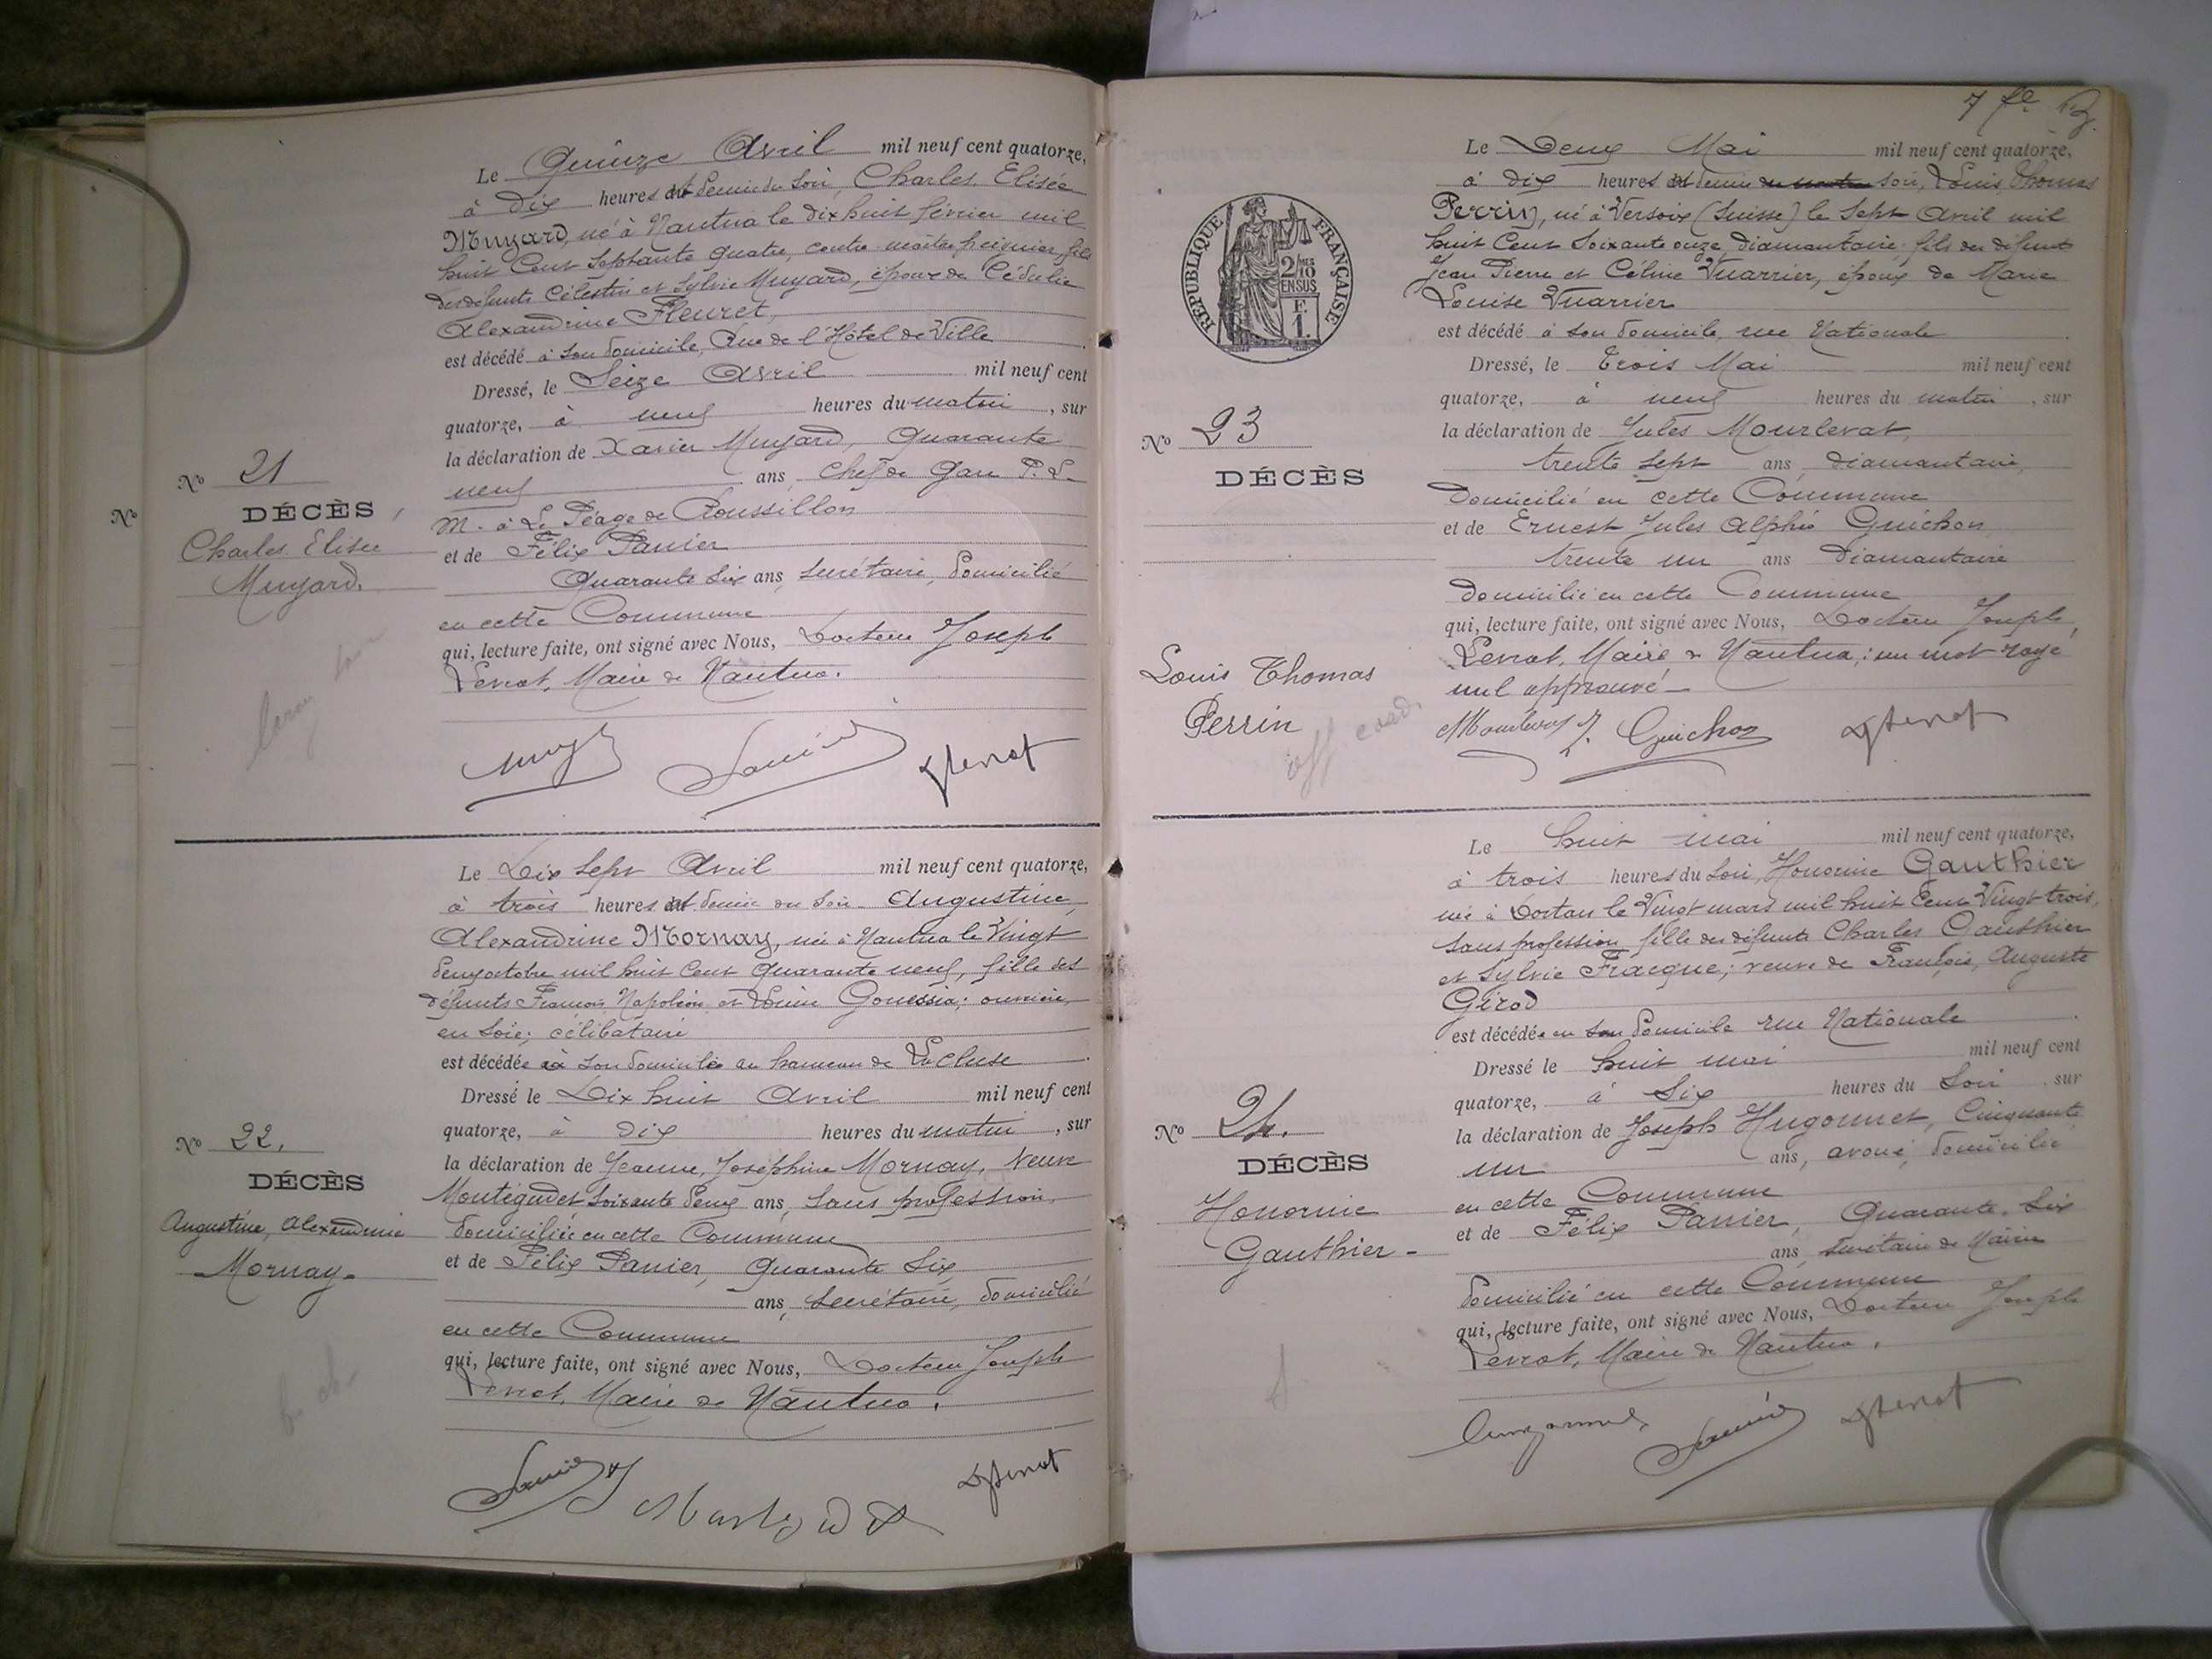 Le Quinze Avril mil neuf cent quatorze,
à Dix heures et demie du soir, Charles Elisée
Muyard, né à Nantua le dix huit février mil
huit cent septante quatre, contre-maître peignier, fils
des défunts Célestin et Sylvie Muyard, époux de Cédulie
Alexandrine Fleuret,
est décédé à son domicile, Rue de l'Hôtel de Ville
Dressé, le Seize Avril mil neuf cent
quatorze, à neuf heures du matin, sur
la déclaration de Xavier Muyard, Quarante
neuf ans, chef de Gare P. L.
M. à Le Péage de Roussillon
et de Félix Panier
Quarante six ans, secrétaire, domicilié
en cette Commune
qui, lecture faite, ont signé avec Nous, Docteur Joseph
Levrat, Maire de Nantua.
No 21
DÉCÈS
Charles Elisée
Muyard.
No
Le Dix sept Avril mil neuf cent quatorze,
à trois heures et demie du soir Augustine,
Alexandrine Mornay, née à Nantua le Vingt
deux octobre mil huit cent quarante neuf, fille des
défunts François Napoléon et Louise Gouessia; ouvrière
en soie; célibataire
est décédée à son domicile au hameau de La Cluse
Dressé le Dix huit Avril mil neuf cent
quatorze, à Dix heures du matin, sur
la déclaration de Jeanne, Joséphine Mornay, Veuve
Montégudet soixante deux ans, sans profession,
domiciliée en cette Commune
et de Félix Panier, Quarante six
ans, secrétaire, domicilié
en cette Commune
qui, lecture faite, ont signé avec Nous, Docteur Joseph
Levrat, Maire de Nantua.
No 22.
DÉCÈS
Augustine, Alexandrine
Mornay.
7 fe
Le Deux Mai mil neuf cent quatorze,
à dix heures et demie du soir, Louis Thomas
Perrin, né à Versoix (Suisse) le sept Avril mil
huit cent soixante onze, diamantaire, fils des défunts
Jean Pierre et Céline Vuarrier, époux de Marie
Louise Vuarrier
est décédé à son domicile, rue Nationale
Dressé, le trois Mai mil neuf cent
quatorze, à neuf heures du matin, sur
la déclaration de Jules Mourlevat,
trente sept ans, diamantaire,
domicilié en cette Commune
et de Ernest Jules Alphée Guichon
trente un ans Diamantaire
domicilié en cette Commune
qui, lecture faite, ont signé avec Nous, Docteur Joseph,
Levrat, Maire de Nantua; un mot rayé
nul approuvé
Guichon
RÉPUBLIQUE FRANÇAISE
2/10
EN SUS
F.
1.
No 23
DÉCÈS
Louis Thomas
Perrin
Le huit mai mil neuf cent quatorze,
à trois heures du soir, Honorine Gauthier
née à Dortan le Vingt mars mil huit cent Vingt trois,
sans profession, fille des défunts Charles Gauthier
et Sylvie Fracque; veuve de François, Auguste
Girod
est décédée en son domicile rue Nationale
Dressé le huit mai mil neuf cent
quatorze, à six heures du soir, sur
la déclaration de Joseph Hugonnet, Cinquante
un ans, avoué, domicilié
en cette Commune
et de Félix Panier, Quarante six
ans, secrétaire de Mairie
domicilié en cette Commune
qui, lecture faite, ont signé avec Nous, Docteur Joseph
Levrat, Maire de Nantua.
No 24.
DÉCÈS
Honorine
Gauthier